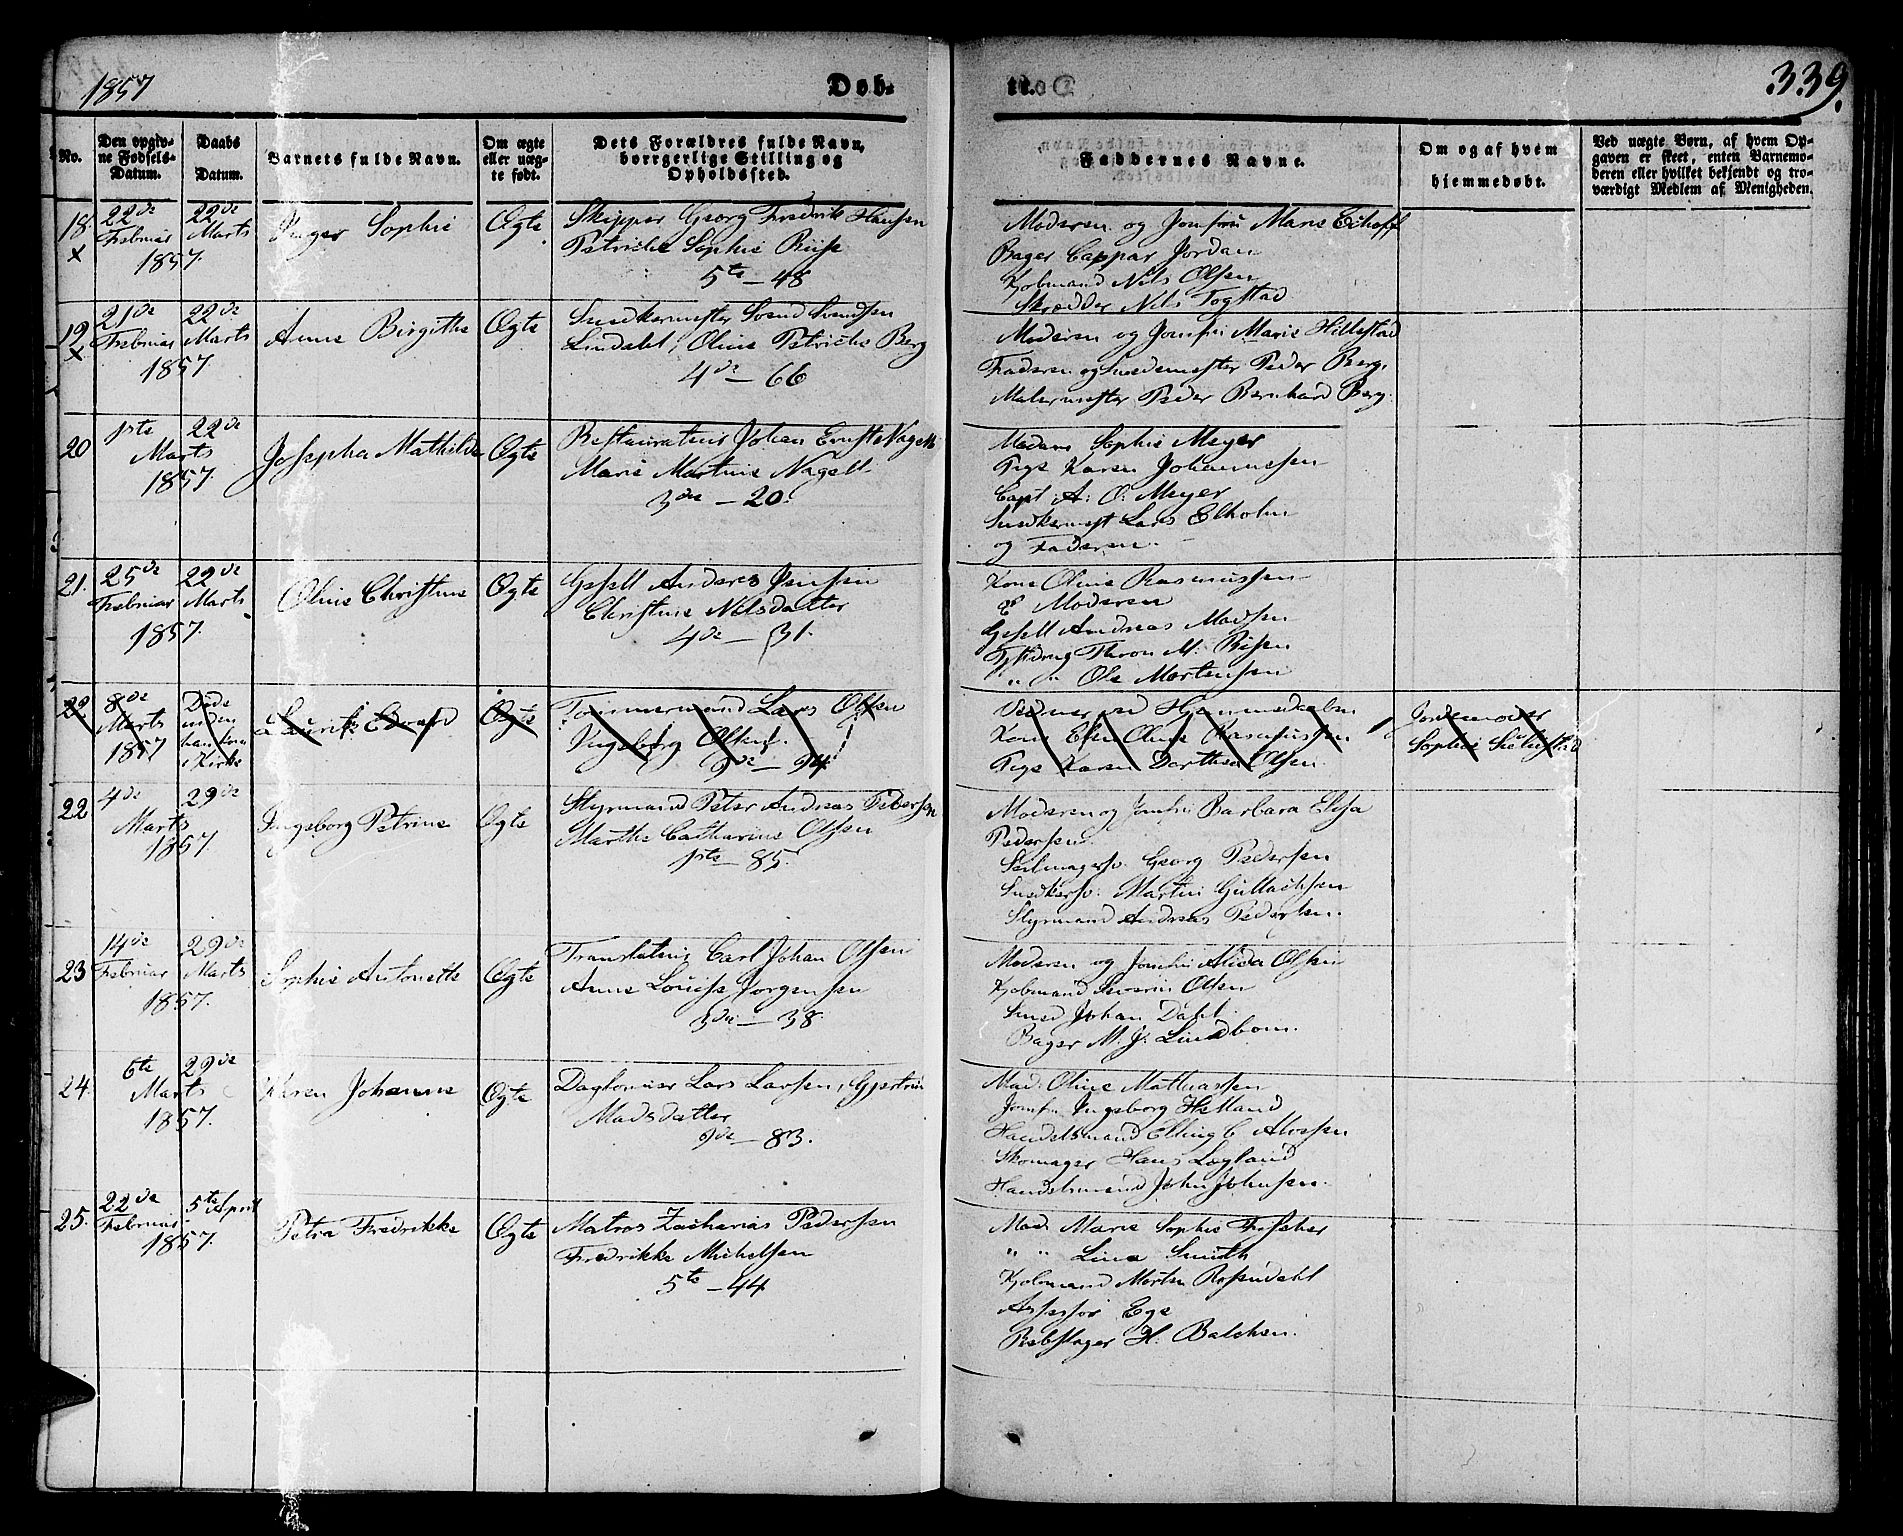 1857
Døb-
te.
339.
No.
Den opgiv-
ne Fødsels-
Datum.
Daabs
Datum.
Barnets fulde Navn.
Om ægte
eller uæg-
te født.
Dets Forældres fulde Navn,
borgerlige Stilling og
Opholdssted.
Faddernes Navne.
Om og af hvem
hjemmedøbt.
Ved uægte Børn, af hvem Op-
gaven er skeet, enten Barnemo-
deren eller hvilket bekjendt og tro-
værdigt Medlem af Menigheden.
18.
x
22de
Februar
1857.
22de
Marts
Inger Sophie
Ægte
Skipper Georg Fredrik Hansen
Petriche Sophie Riise
5te - 48
Moderen og Jomfru Marie Eihoff
Bager Cappar Jordan
Kjøbmand Nils Olsen
Skrædder Nils Togstad
19
x
21de
Februar
1857.
22de
Marts
Anne Birgithe
Ægte
Snedkermester Svend Svendsen
Lindahl, Oline Petriche Berg
4de - 66
Moderen og Jomfru Marie Hillestad
Faderen og Smedemester Peder Berg.
Malermester Peder Bernhard Berg.
20
1ste
Marts
1857.
22de
Josepha Mathilde
Ægte
Restaurateur Johan Ernst Nagell
Marie Martine Nagell
3die - 20.
Madam Sophie Meyer
Pige Karen Johannessen
Capt A: O: Meyer
Snedkermest Lars Elholm
og Faderen.
21.
25de
Februar
1857.
22de
Marts
Oline Christine
Ægte
Gesell Anders Jensen
Christine Nilsdatter
4de - 31.
Kone Oline Rasmussen
& Moderen
Gesell Andreas Madsen
Thron M. Risen
" " Ole Mortensen
22.
8de
Marts
1857
Døde
inden
han kom
i Kirke
Laurits Edvard
Ægte
Tømmermand Lars Olsen
Ingeborg Olsen
2de - 94.
Vidner ved Hjemmedaaben
Kone Ellen Oline Rasmussen
Pige Karen Dorthea Olsen
Jordemoder
Sophie
22
4de
Marts
1857.
29de
Ingeborg Petrine
Ægte
Styrmand Peter Andreas Pedersen
Marthe Catharine Olsen
1ste - 85.
Moderen og Jomfru Barbara Elisa
Pedersen.
Seilmagersv. Georg Pedersen
Snedkersv. Martin Gullachsen
Styrmand Andreas Pedersen.
23
14de
Februar
1857.
29de
Marts
Sophie Antonette
Ægte
Translateur Carl Johan Olsen
Anne Lovise Jørgensen
3die - 38.
Moderen og Jomfru Alida Olsen
Kjøbmand Severin Olsen
Smed Johan Dahl.
Bager M. J. Lindbom.
24.
6te
Marts
1857.
29de
Karen Johanne
Ægte
Daglønner Lars Larsen, Gjertrin
Madsdatter
2de - 83.
Mad. Oline Mathiassen
Jomfru Ingeborg Helland
Handelsmand Elling C Alvesen
Skomager Hans Løgland
Handelsmand John Johnsen.
25.
22de
Februar
1857.
5te April
Petra Fredrikke
Ægte
Matros Zacharias Pedersen
Fredrikke Michelsen
5te - 44
Mad. Marie Sophie Fischer
" " Lina Smith
Kjøbmand Morten Rosendahl
Assessor Ege
Rebslager H. Balchen.